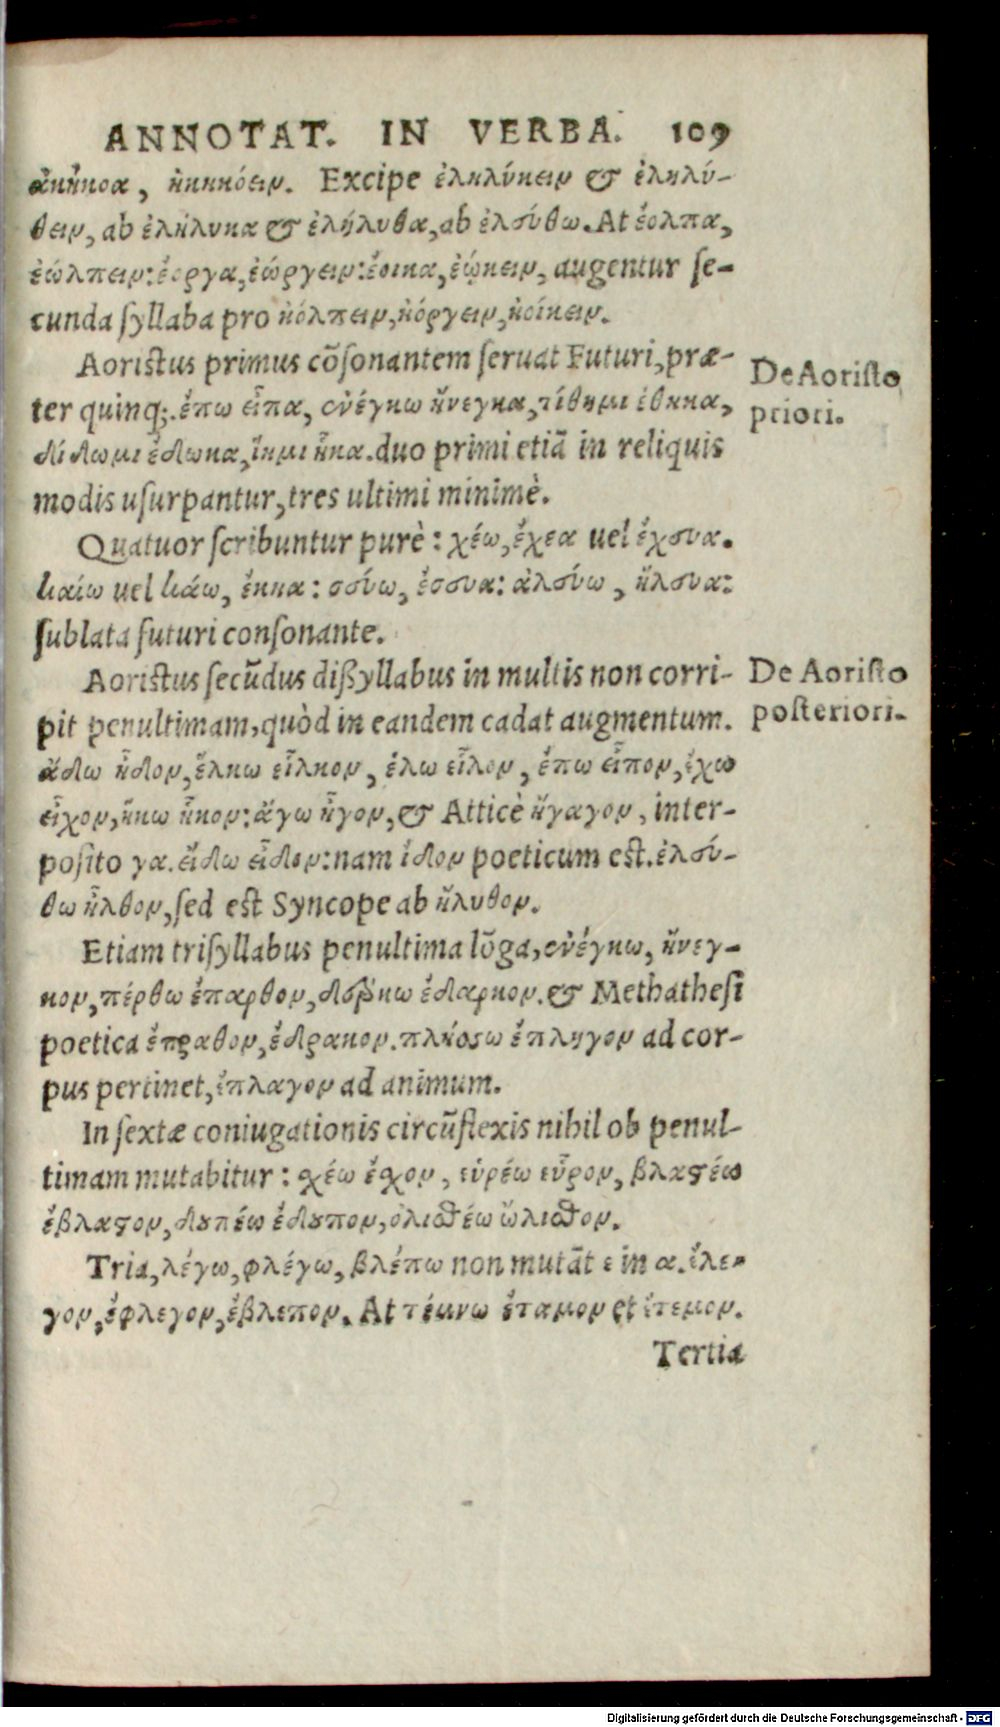 ANNOTAT. IN VERBA. 109
ἀκήκοα, ἠκηκόειν. Excipe ἐληλύκειν & ἐληλύ-
θειν, ab ἐλήλυκα & ἐλήλυθα, ab ἐλεύθω. At ἔολπα,
ἐώλπειν: ἔοργα, ἐώργειν: ἔοικα, ἐῴκειν, augentur se-
cunda syllaba pro ἠόλπειν, ἠόργειν, ἠοίκειν.
Aoristus primus cõsonantem seruat Futuri, præ-
ter quinq;. ἔπω εἶπα, ἐνέγκω ἤνεγκα, τίθημι ἔθηκα,
δίδωμι ἔδωκα, ἵημι ἧκα. duo primi etiã in reliquis
modis usurpantur, tres ultimi minimè.
De Aoristo
priori.
Quatuor scribuntur purè: χέω, ἔχεα uel ἔχευα.
καίω uel κάω, ἔκηα: σεύω, ἔσευα: ἀλεύω, ἤλευα:
sublata futuri consonante.
Aoristus secũdus dißyllabus in multis non corri-
pit penultimam, quòd in eandem cadat augmentum.
De Aoristo
posteriori.
ἅδω ἧδον, ἕλκω εἷλκον, ἕλω εἷλον, ἔπω εἶπον, ἔχω
εἶχον, ἥκω ἧκον: ἄγω ἦγον, & Atticè ἤγαγον, inter-
posito γα. εἴδω εἶδον: nam ἴδον poeticum est. ἐλεύ-
θω ἦλθον, sed est Syncope ab ἤλυθον.
Etiam trisyllabus penultima lõga, ἐνέγκω, ἤνεγ-
κον, πέρθω ἔπαρθον, δέρκω ἔδαρκον. & Methathesi
poetica ἔπραθον, ἔδρακον. πλήσσω ἔπληγον ad cor-
pus pertinet, ἔπλαγον ad animum.
In sextæ coniugationis circũflexis nihil ob penul-
timam mutabitur: σχέω ἔσχον, εὑρέω εὗρον, βλαστέω
ἔβλαστον, δουπέω ἔδουπον, ὀλισθέω ὤλισθον.
Tria, λέγω, φλέγω, βλέπω non mutãt ε in α. ἔλε-
γον, ἔφλεγον, ἔβλεπον. At τέμνω ἔταμον et ἔτεμον.
Tertia
Digitalisierung gefördert durch die Deutsche Forschungsgemeinschaft - DFG